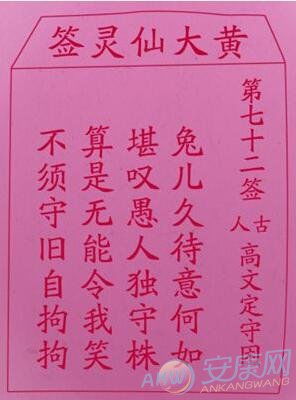 黄大仙灵签
第七十二签
古人 高文定守困
兔儿久待意何如
堪叹愚人独守株
算是无能令我笑
不须守旧自拘拘
安康网
ANKANGWANG